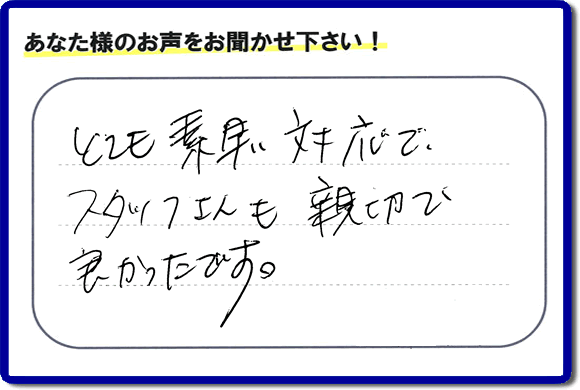 あなた様のお声をお聞かせ下さい！
とても素早い対応で、
スタッフさんも親切で
良かったです。